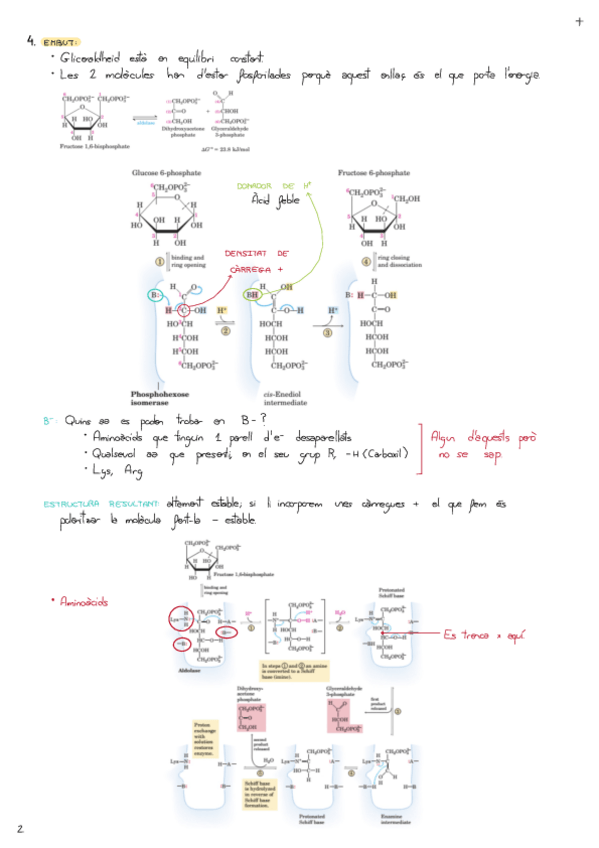 +
4. EMBUT:
· Gliceraldheid està en equilibri constant.
· Les 2 molècules han d'estar fosforilades perquè aquest enllaç és el que porta l'energia.
CH₂OPO₃²⁻ CH₂OPO₃²⁻
aldolase
Fructose 1,6-bisphosphate
Dihydroxyacetone phosphate
Glyceraldehyde 3-phosphate
ΔG'° = 23.8 kJ/mol
Glucose 6-phosphate
Fructose 6-phosphate
DONADOR DE H⁺
Àcid feble
① binding and ring opening
DENSITAT DE CÀRREGA +
④ ring closing and dissociation
B:
BH
H⁺
②
H⁺
③
B:
Phosphohexose isomerase
cis-Enediol intermediate
B⁻: Quins aa es poden trobar en B- ?
· Aminoàcids que tinguin 1 parell d'e- desaparellats
· Qualsevol aa que presenti, en el seu grup R, -H (Carboxil)
· Lys, Arg
Algun d'aquests però no se sap.
ESTRUCTURA RESULTANT: altament estable; si li incorporem unes càrregues + el que fem és
polaritzar la molècula fent-la - estable.
Fructose 1,6-bisphosphate
binding and ring opening
· Aminoàcids
Protonated Schiff base
Lys
H⁺
①
H₂O
②
Es trenca x aquí
Aldolase
In steps ① and ② an amine is converted to a Schiff base (imine).
Dihydroxyacetone phosphate
Glyceraldehyde 3-phosphate
first product released
③
Proton exchange with solution restores enzyme.
second product released
H₂O
⑤
④
Schiff base is hydrolyzed in reverse of Schiff base formation.
Protonated Schiff base
Enamine intermediate
2